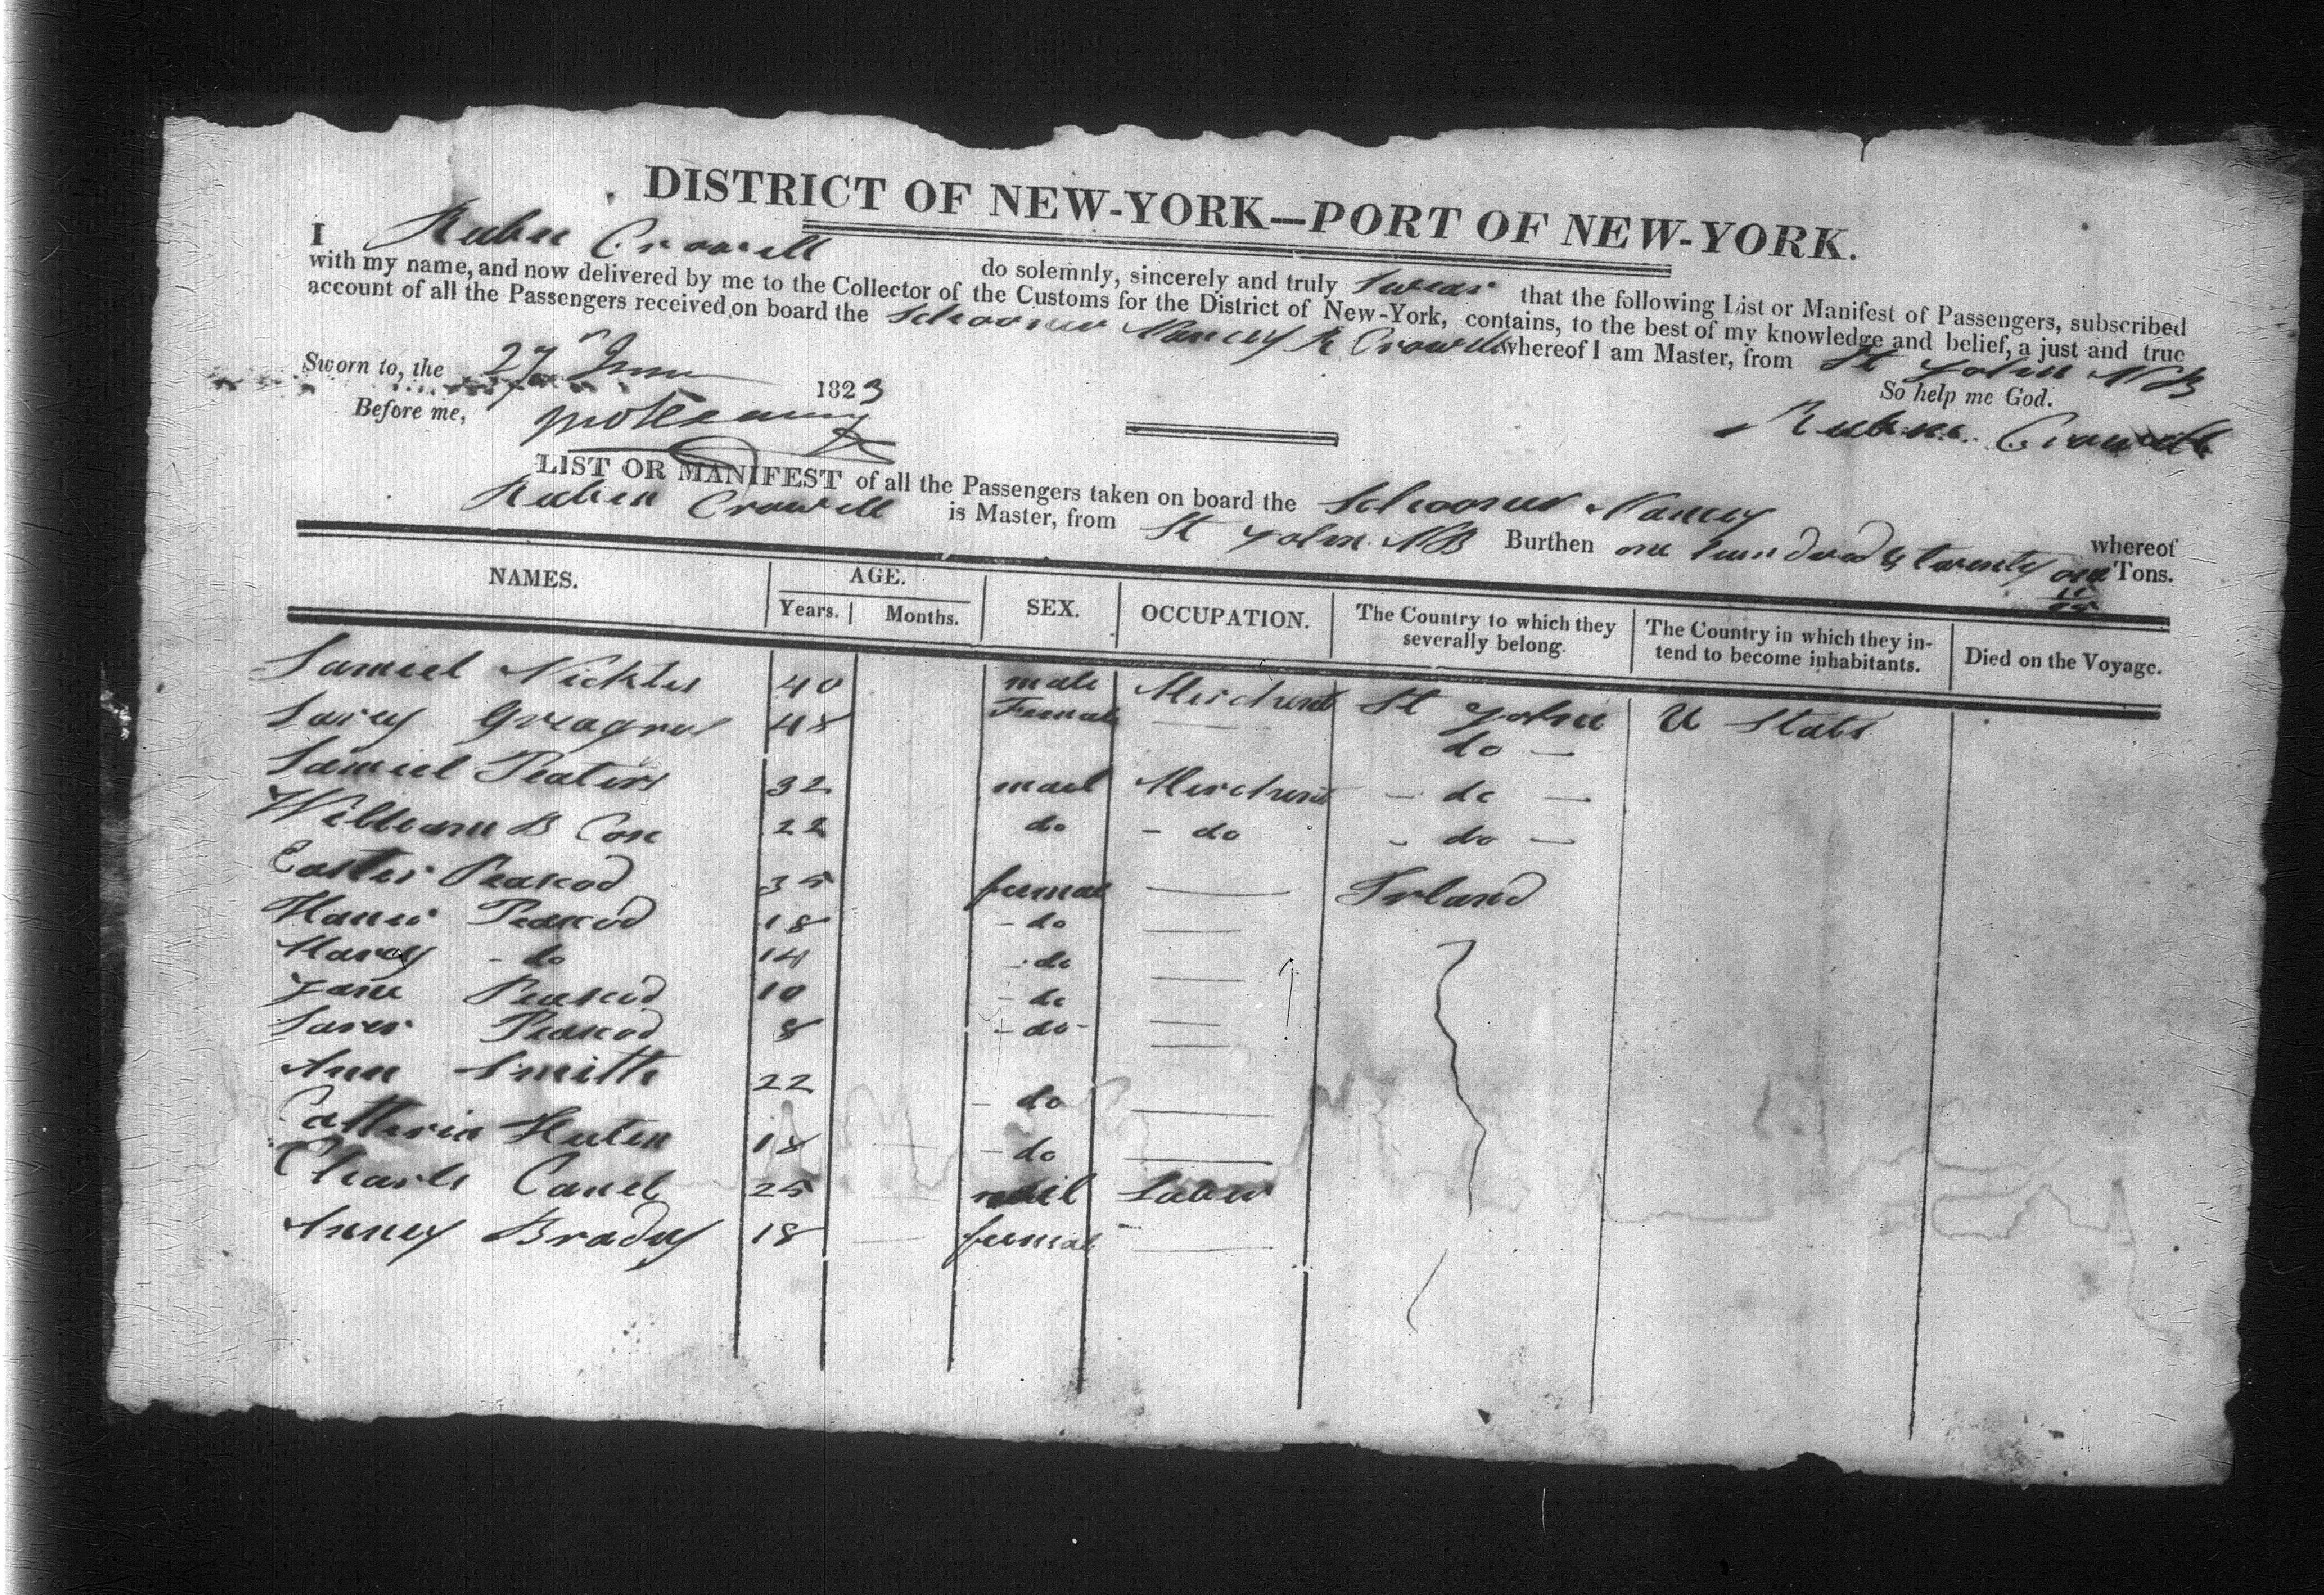 DISTRICT OF NEW-YORK—PORT OF NEW-YORK.
I Ruben Crowell do solemnly, sincerely and truly swear that the following List or Manifest of Passengers, subscribed
with my name, and now delivered by me to the Collector of the Customs for the District of New-York, contains, to the best of my knowledge and belief, a just and true
account of all the Passengers received on board the Schooner Nancy R Crowell whereof I am Master, from St John NB
Sworn to, the 27 June 1823 So help me God.
Before me, Ruben Crowell
LIST OR MANIFEST of all the Passengers taken on board the Schooner Nancy whereof
Ruben Crowell is Master, from St John NB Burthen one hundred & twenty one Tons.
NAMES. AGE. SEX. OCCUPATION. The Country to which they severally belong. The Country in which they intend to become inhabitants. Died on the Voyage.
Years. Months.
Samuel Nickles 40 male Merchant St John U States
Sarey 48 Female — do —
Samuel Peaters 32 mael Merchant — do —
William B Cox 22 do - do - do —
Easter Peakod 35 femal — Irland
Peakod 18 - do —
Marey - do 14 - do —
Jane Peakod 10 - do —
Sarer Peakod 8 - do - —
Ann Smith 22 - do —
Catherin Huten 18 — - do —
Charls 25 — mail Laber
Anney Bradey 18 — femal —